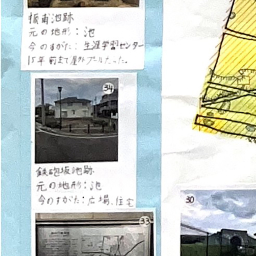 板南池跡
元の地形：池
今のすがた：生涯学習センター
15年前まで屋外プールだった。
34
鉄砲坂池跡
元の地形：池
今のすがた：広場、住宅
33
30